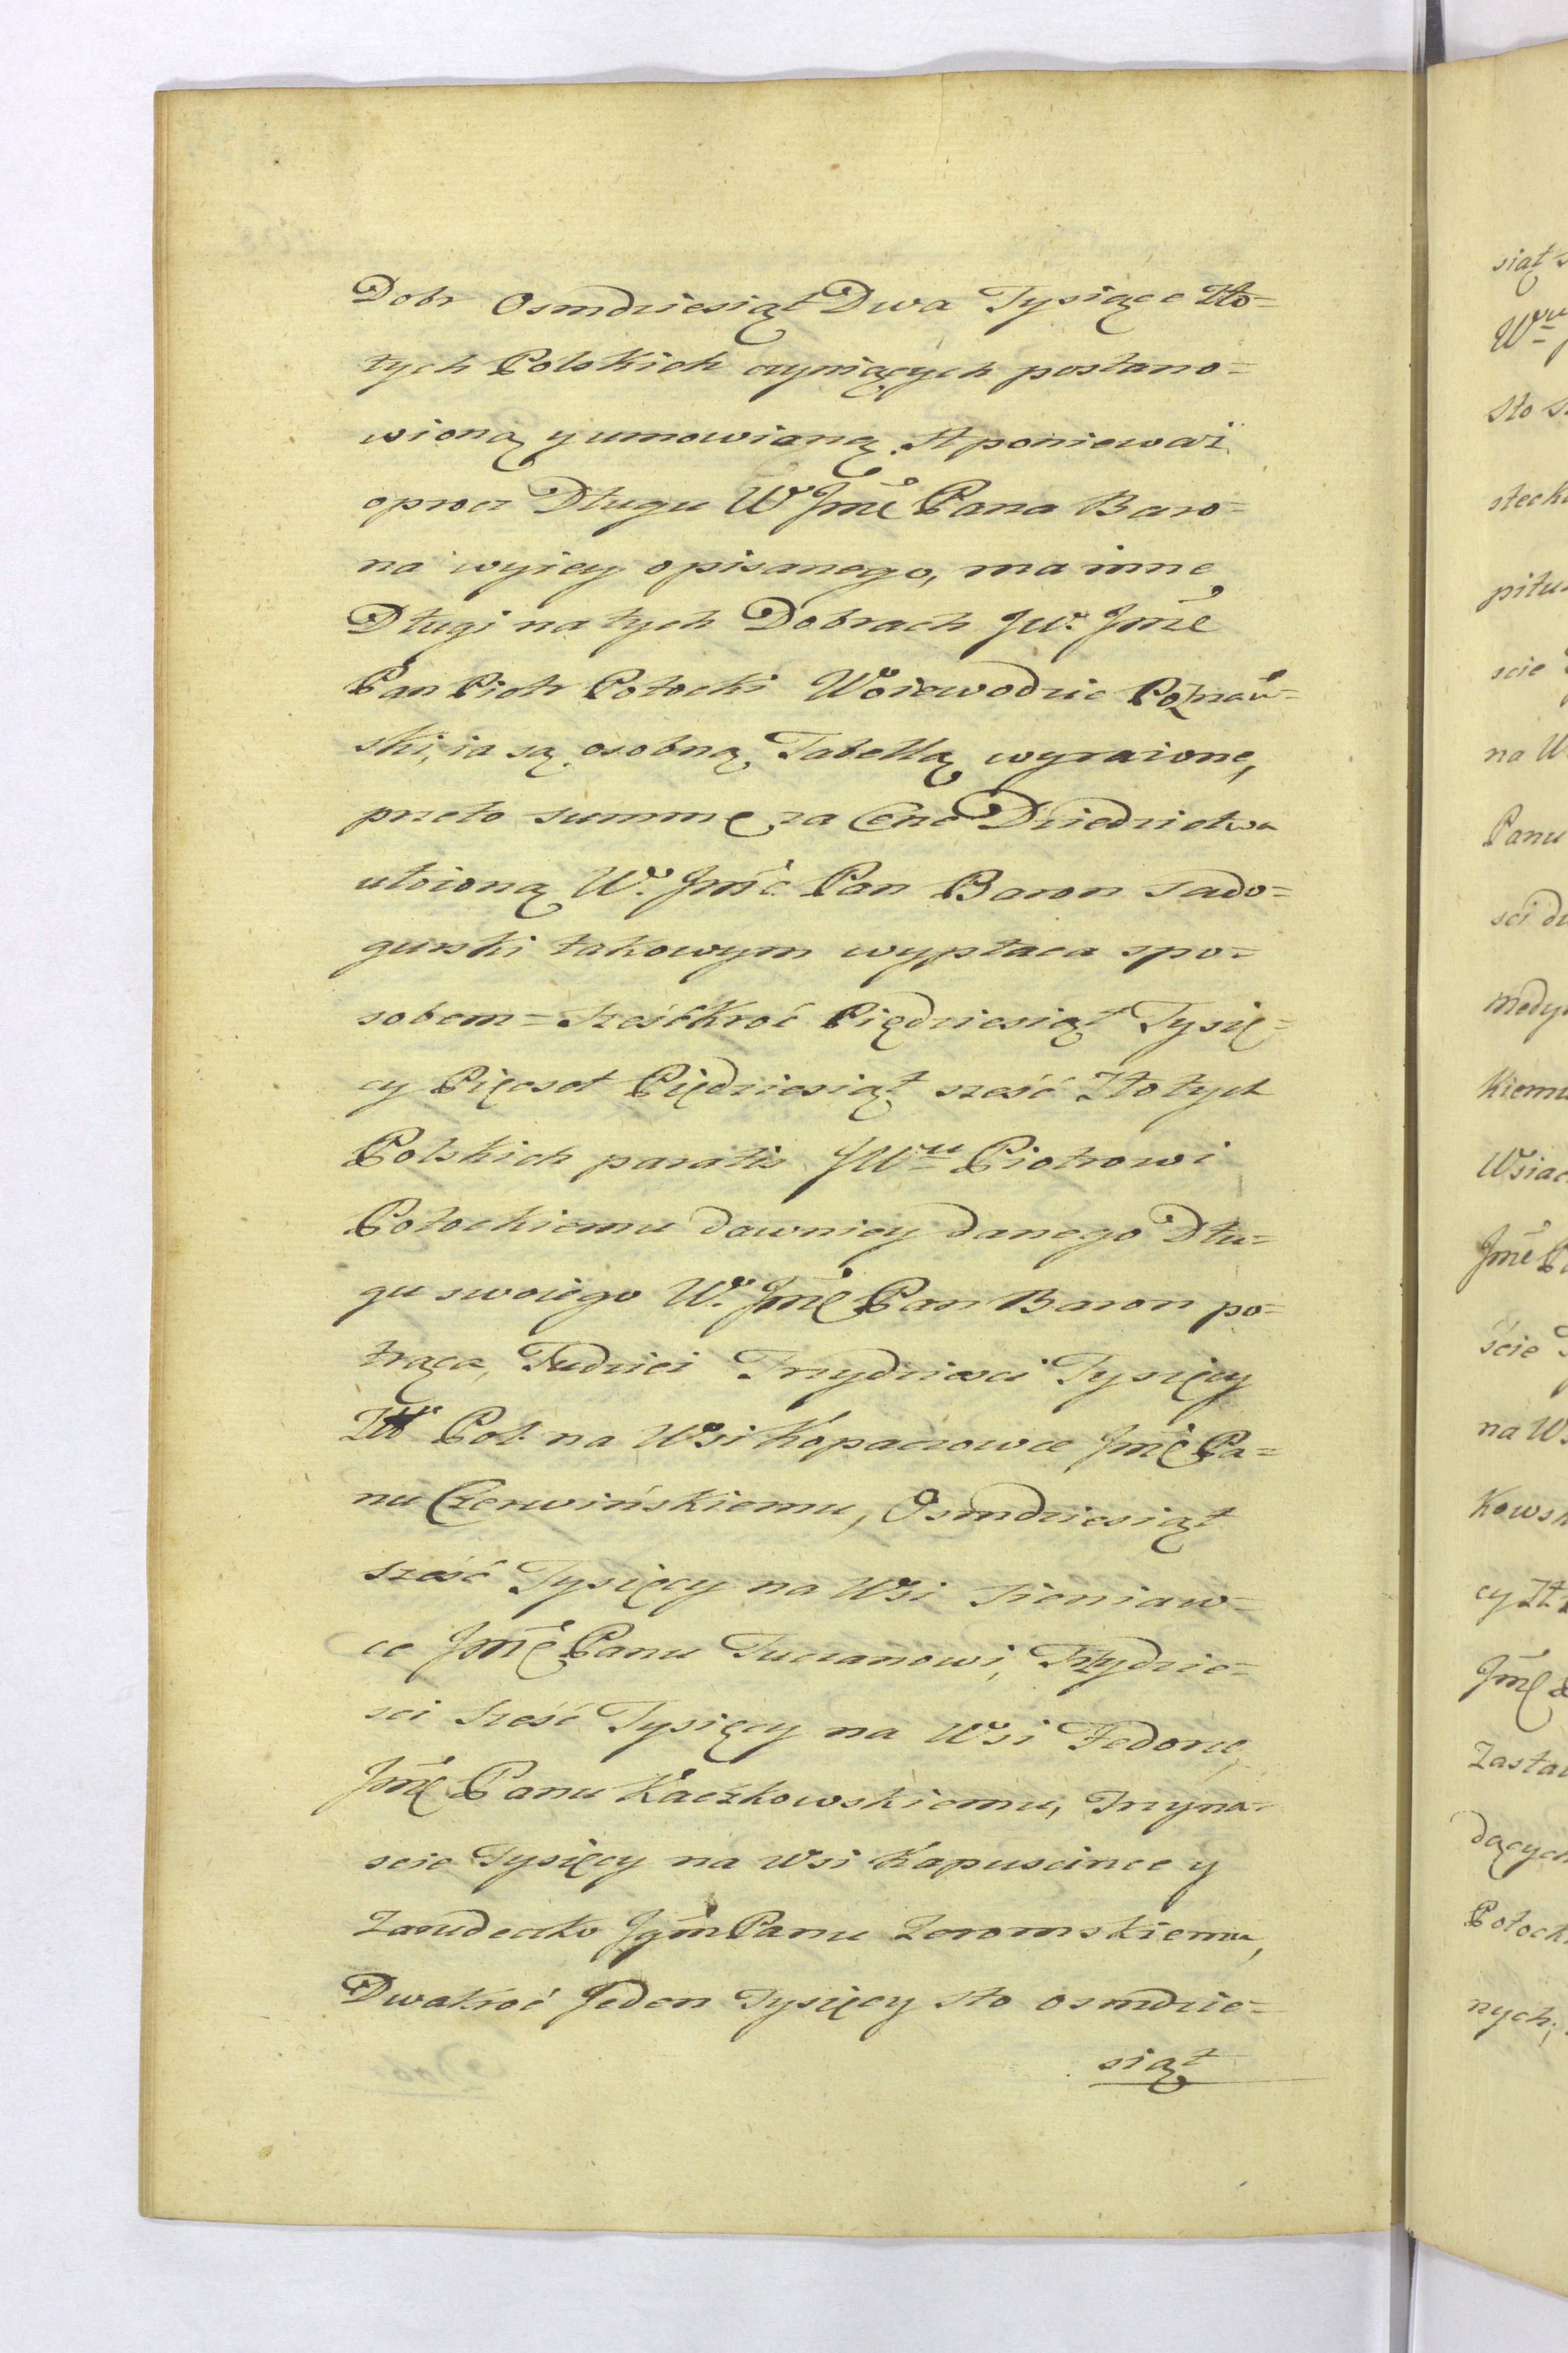 Dobr Osmdziesiąt Dwa Tysiące Zło=
tych Polskich czyniących postano=
wioną y umowioną. A ponieważ
oprocz Długu W. Jmć Pana Baro=
na wyżey opisanego, ma inne
Długi na tych Dobrach Jw. Jmć
Pan Piotr Potocki Woiewodzic Poznań=
ski, ia są osobną Tabellą wyrażone,
przeto summę za Cenę Dziedzictwa
ułożoną W. Jmść Pan Baron Sado=
gurski takowym wypłaca spo=
sobem = Sześćkroć Piędziesiąt Tysię=
cy Pięcset Piędziesiąt sześć Złotych
Polskich paratis JWu Piotrowi
Potockiemu dawniey danego Dłu=
gu swoiego W. Jmć Pan Baron po=
trąca, Tudzież Trzydziesci Tysięcy
Zło Pol. na Wsi Kopaczowce Jmć Pa=
nu Czerwińskiemu, Osmdziesiąt
sześć Tysięcy na Wsi Sieniaw=
ce Jmć Panu Tuczanowi, Trzydzie=
sci Sześć Tysięcy na Wsi Fedorce,
Jmć Panu Kaczkowskiemu, Trzyna=
scie Tysięcy na Wsi Kapuscince y
Zarudeczko Jgm Panu Zeromskiemu,
Dwakroć Jeden Tysięcy sto osmdzie=
siąt
siąt
Wu
sto
steck
pitu
scie
na W
Panu
sci d
Medy
kiemu
Wsiac
Jmć P
ście
na W
kowsk
cy Zł
Jmć
Zasta
dących
Potock
nych;